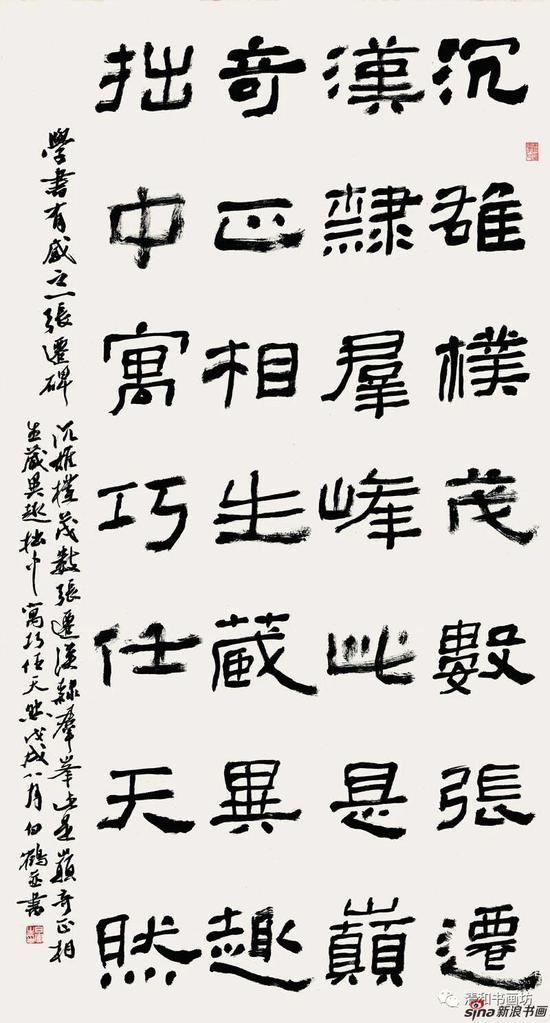 沉雄樸茂數張遷
漢隸羣峰此是巔
奇正相生蔵異趣
拙中寓巧任天然
學書有感之一張遷碑
沉雄樸茂數張遷漢隸羣峯此是巔奇正相
生蔵異趣拙中寓巧任天然戊戌八月白鶴並書
清和书画坊
sina新浪书画